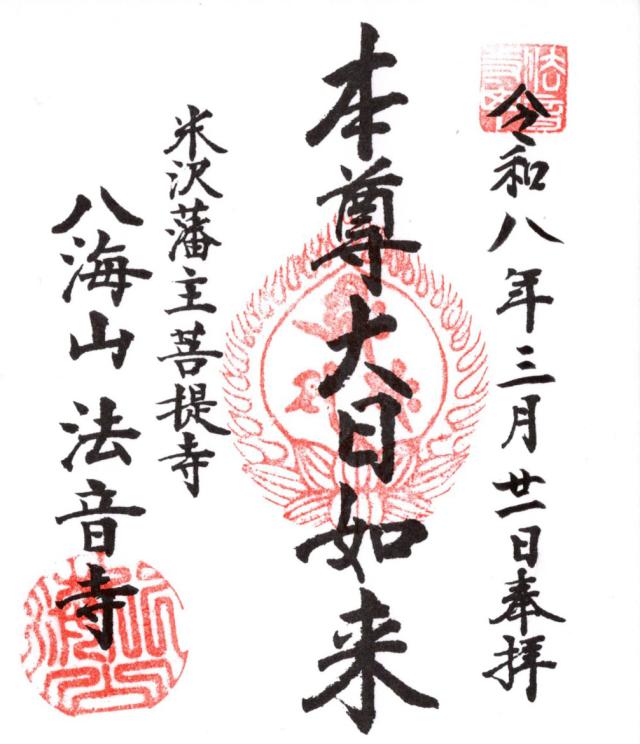 令和八年三月廿一日奉拝
本尊大日如来
米沢藩主菩提寺
八海山法音寺